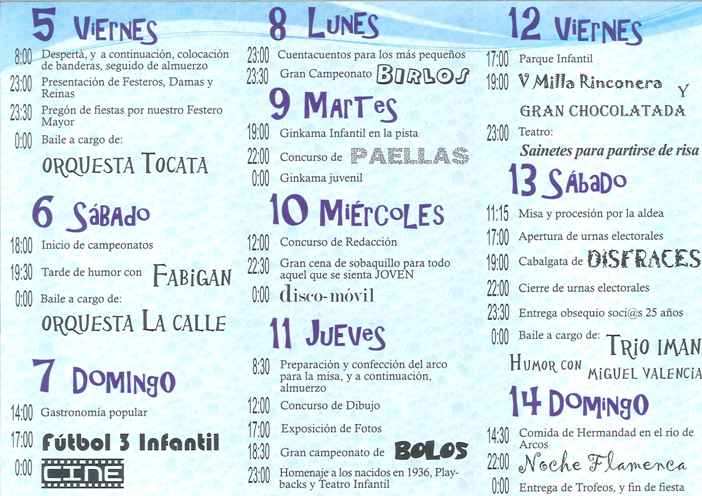 5 Viernes
8:00 Despertà, y a continuación, colocación
de banderas, seguido de almuerzo
23:00 Presentación de Festeros, Damas y
Reinas
23:30 Pregón de fiestas por nuestro Festero
Mayor
0:00 Baile a cargo de:
ORQUESTA TOCATA
6 SÁBADO
18:00 Inicio de campeonatos
19:30 Tarde de humor con FABIGAN
0:00 Baile a cargo de:
ORQUESTA LA CALLE
7 DOMINGO
14:00 Gastronomía popular
17:00 Fútbol 3 Infantil
0:00 CINE
8 LUNES
23:00 Cuentacuentos para los más pequeños
23:30 Gran Campeonato BIRLOS
9 MARTES
19:00 Ginkama Infantil en la pista
22:00 Concurso de PAELLAS
0:00 Ginkama juvenil
10 MIÉRCOLES
12:00 Concurso de Redacción
22:30 Gran cena de sobaquillo para todo
aquel que se sienta JOVEN
0:00 disco-móvil
11 JUEVES
8:30 Preparación y confección del arco
para la misa, y a continuación,
almuerzo
12:00 Concurso de Dibujo
17:00 Exposición de Fotos
18:30 Gran campeonato de BOLOS
23:00 Homenaje a los nacidos en 1936, Play-
backs y Teatro Infantil
12 VIERNES
17:00 Parque Infantil
19:00 V Milla Rinconera Y
GRAN CHOCOLATADA
23:00 Teatro:
Sainetes para partirse de risa
13 SÁBADO
11:15 Misa y procesión por la aldea
17:00 Apertura de urnas electorales
19:00 Cabalgata de DISFRACES
22:00 Cierre de urnas electorales
23:30 Entrega obsequio soci@s 25 años
0:00 Baile a cargo de: TRIO IMAN
HUMOR CON MIGUEL VALENCIA
14 DOMINGO
14:30 Comida de Hermandad en el río de
Arcos
22:00 Noche Flamenca
0:00 Entrega de Trofeos, y fin de fiesta